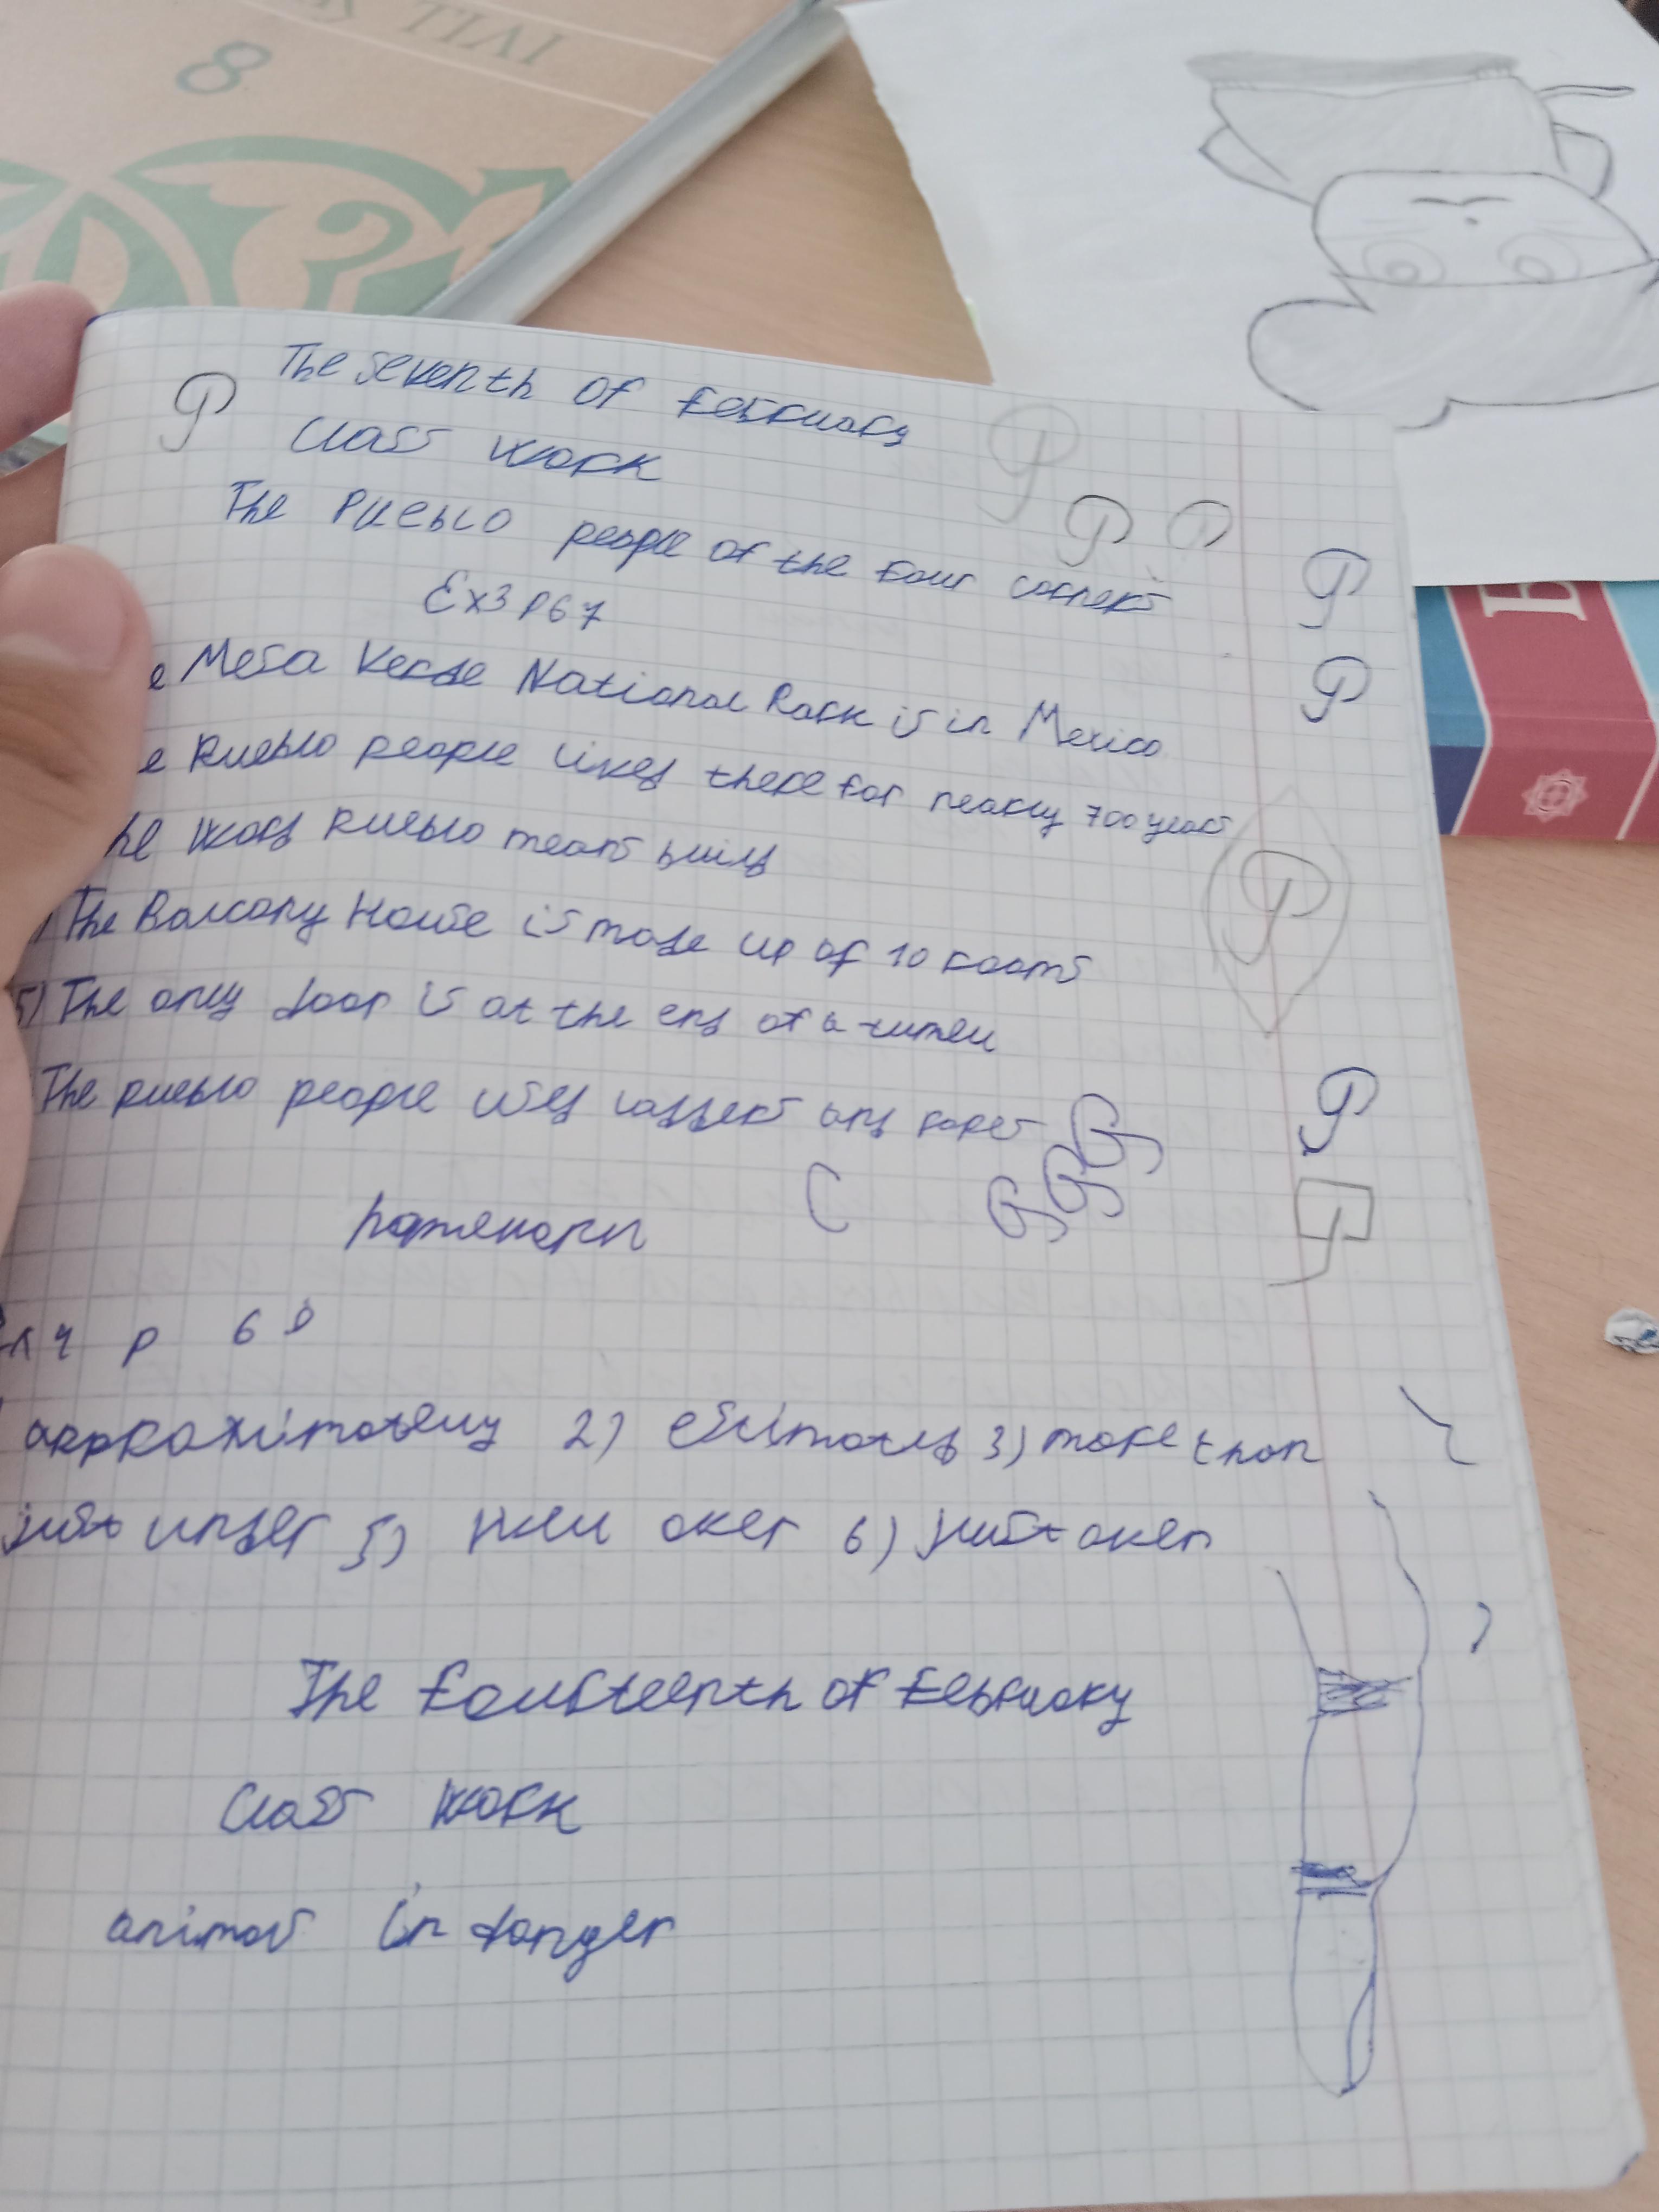 TIVI
8
The seventh of February
Class work
The Pueblo people of the four corners
Ex3 P67
e Mesa Verde National Park is in Mexico
e Pueblo people lived there for nearly 700 years
he word Pueblo means build
The Balcony House is made up of 10 rooms
5) The only door is at the end of a tunnel
The pueblo people used ladders and ropes
P
C
4 p 68
approximately 2) estimated 3) more than
just under 5) well over 6) just over
The fourteenth of February
Class work
animas in danger